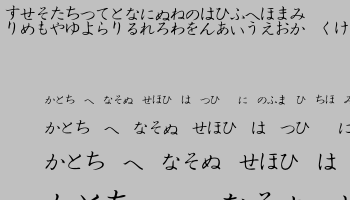 すせそたちつてとなにぬねのはひふへほまみ
りめもやゆよらりるれろわをんあいうえおか くけ
かとち へ なそぬ せほひ は つひ に のふま ひ ちほ
かとち へ なそぬ せほひ は つひ
かとち へ なそぬ せほひ は